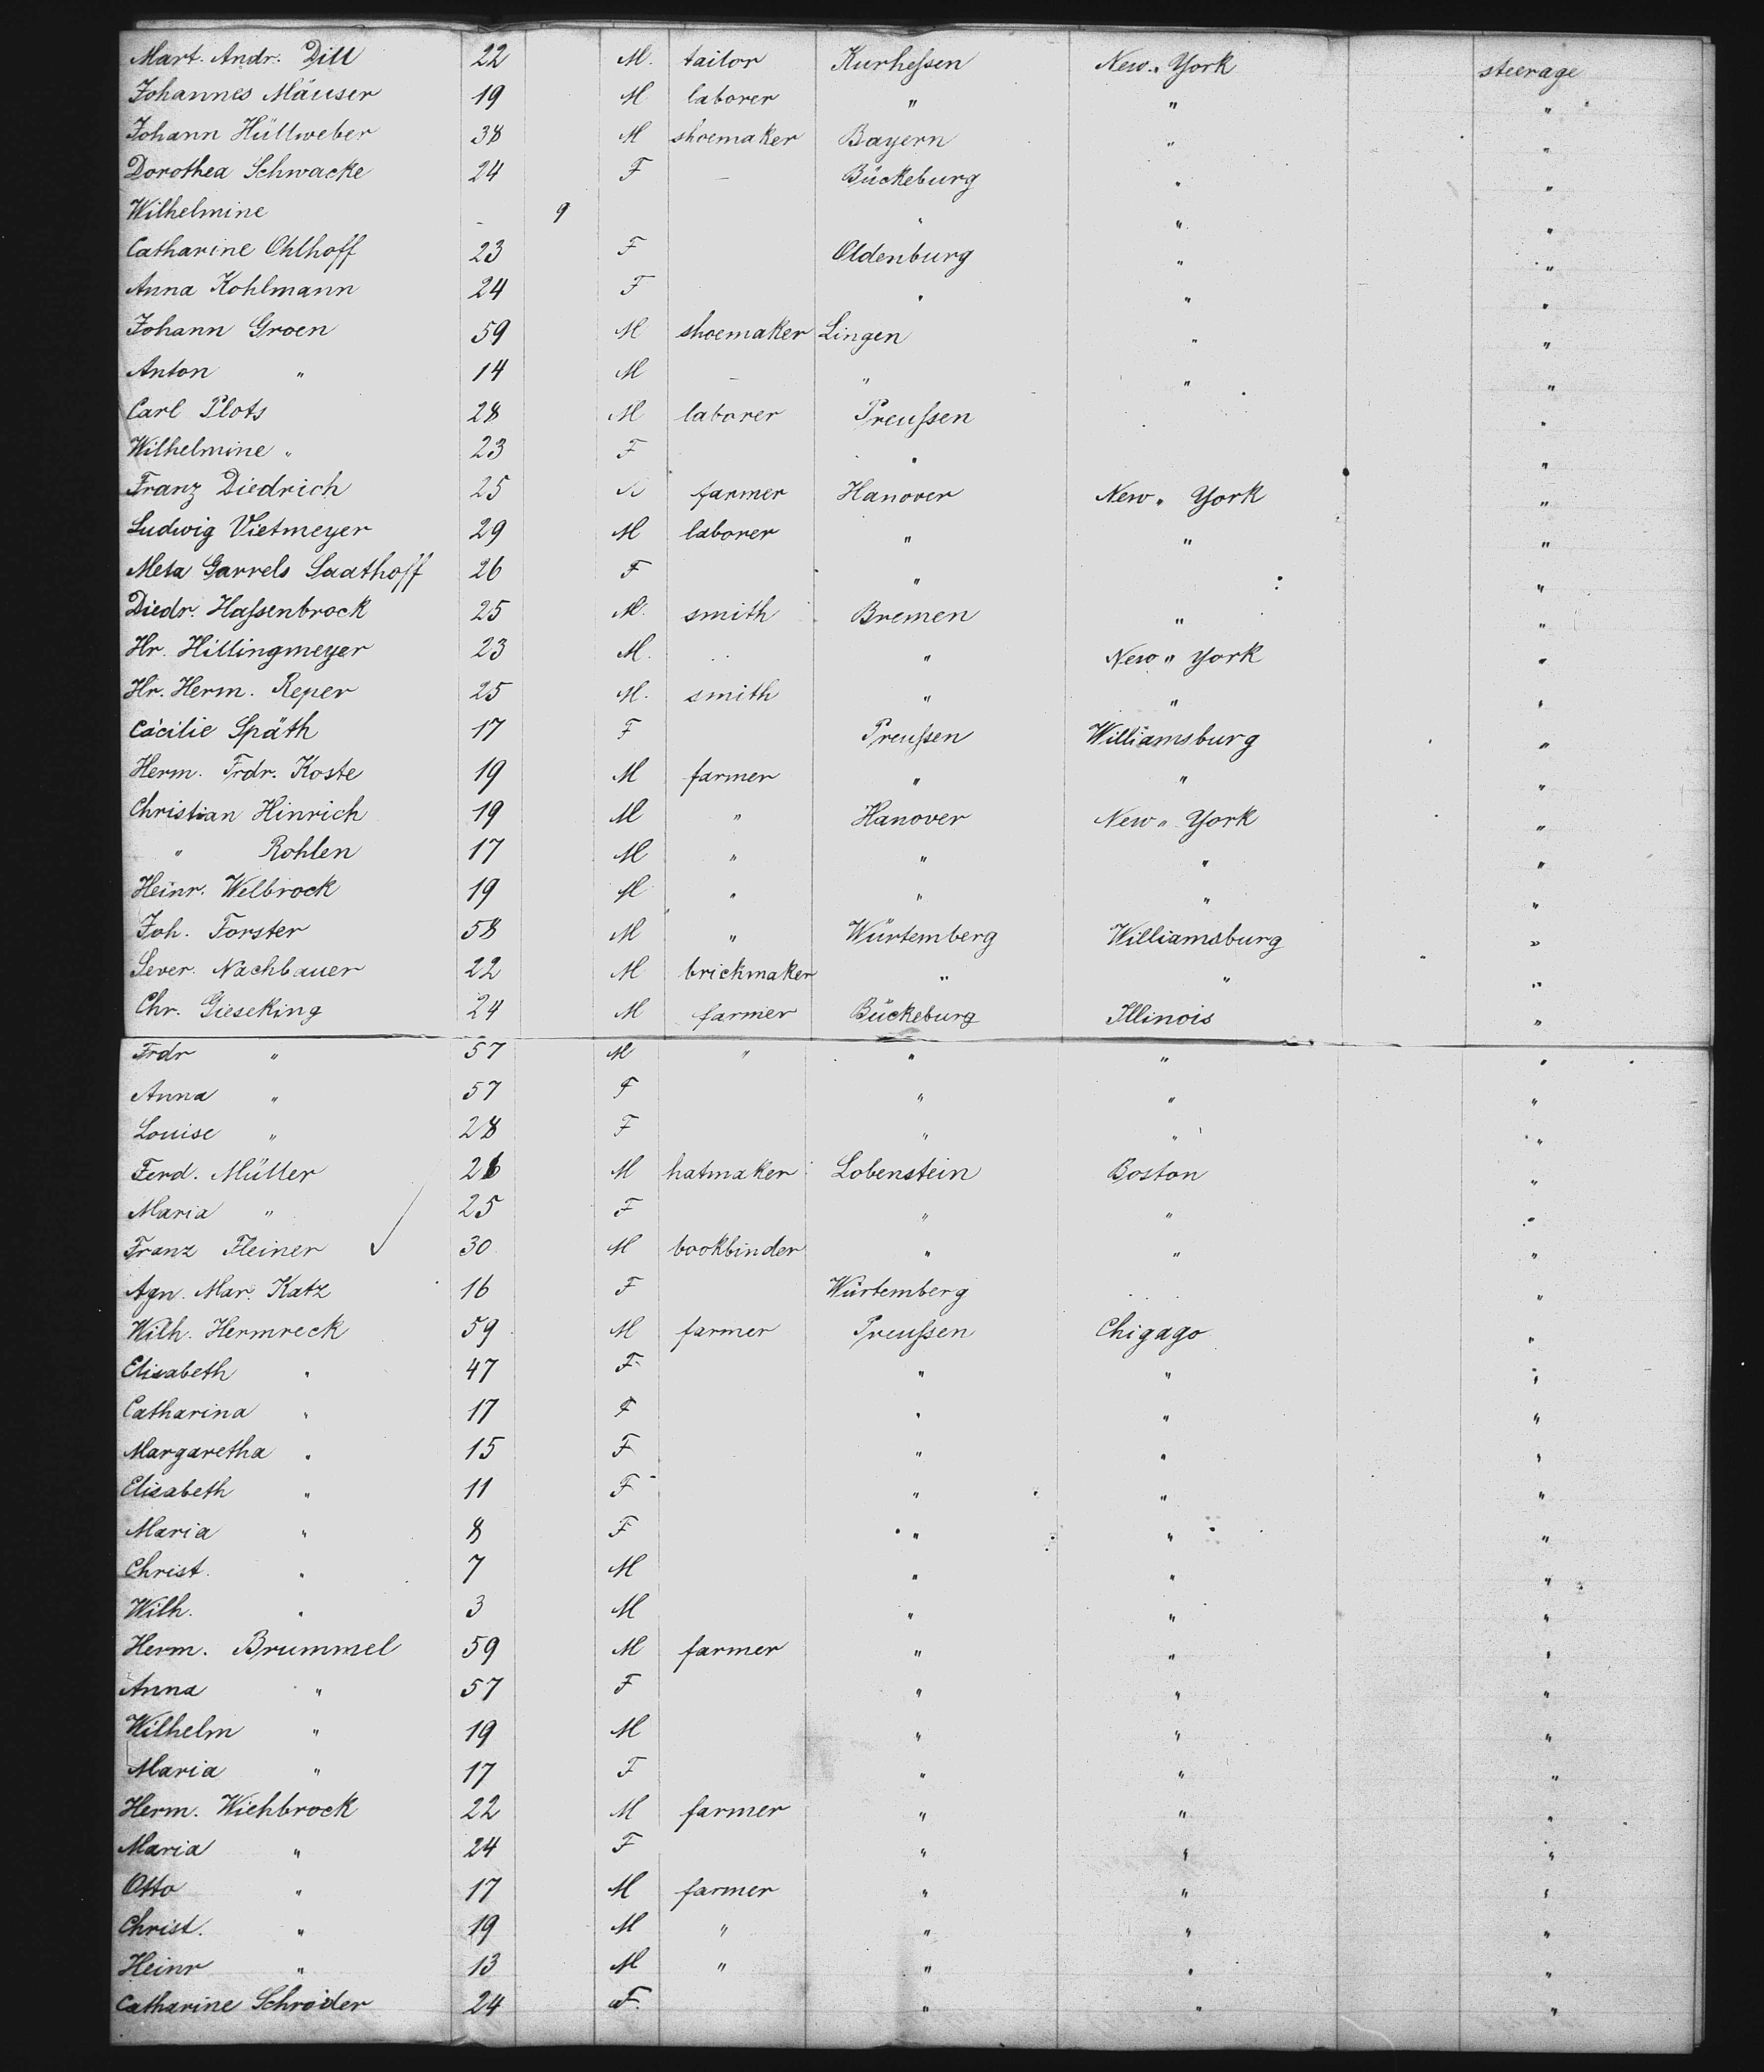 Mart. Andr. Dill 22 M. tailor Kurheſsen New-York steerage
Johannes Mäuser 19 M laborer " " "
Johann Hüllweber 38 M shoemaker Bayern " "
Dorothea Schwacke 24 F — Bückeburg " "
Wilhelmine - 9 " " "
Catharine Ohlhoff 23 F Oldenburg " "
Anna Kohlmann 24 F " " "
Johann Groen 59 M shoemaker Lingen " "
Anton " 14 M — " " "
Carl Plots 28 M laborer Preuſsen "
Wilhelmine " 23 F " "
Franz Diedrich 25 M farmer Hanover New-York "
Ludwig Vietmeyer 29 M laborer " " "
Meta Garrels Saathoff 26 F " "
Diedr. Haſsenbrock 25 M. smith Bremen " "
Hr. Hillingmeyer 23 M. " New-York "
Hr. Herm. Reper 25 M. smith " " "
Cäcilie Späth 17 F Preuſsen Williamsburg "
Herm. Frdr. Koste 19 M farmer " " "
Christian Hinrich 19 M " Hanover New-York "
" Rohlen 17 M " " " "
Heinr. Welbrock 19 M " " " "
Joh. Forster 58 M " Würtemberg Williamsburg "
Sever. Nachbauer 22 M brickmaker " " "
Chr. Gieseking 24 M farmer Bückeburg Illinois "
Frdr " 57 M " " " "
Anna " 57 F " " "
Louise " 28 F " " "
Ferd. Müller 26 M hatmaker Lobenstein Boston "
Maria " 25 F " " "
Franz Fleiner 30 M bookbinder " " "
Agn. Mar. Katz 16 F Würtemberg "
Wilh. Hermreck 59 M farmer Preuſsen Chigago "
Elisabeth " 47 F " " "
Catharina " 17 F " " "
Margaretha " 15 F " " "
Elisabeth " 11 F " " "
Maria " 8 F " " "
Christ. " 7 M " " "
Wilh. " 3 M " " "
Herm. Brummel 59 M farmer " " "
Anna " 57 F " " "
Wilhelm " 19 M " " "
Maria " 17 F " " "
Herm. Wiehbrock 22 M farmer " " "
Maria " 24 F " " "
Otto " 17 M farmer " " "
Christ. " 19 M " " " "
Heinr " 13 M " " " "
Catharine Schröder 24 F. " " "